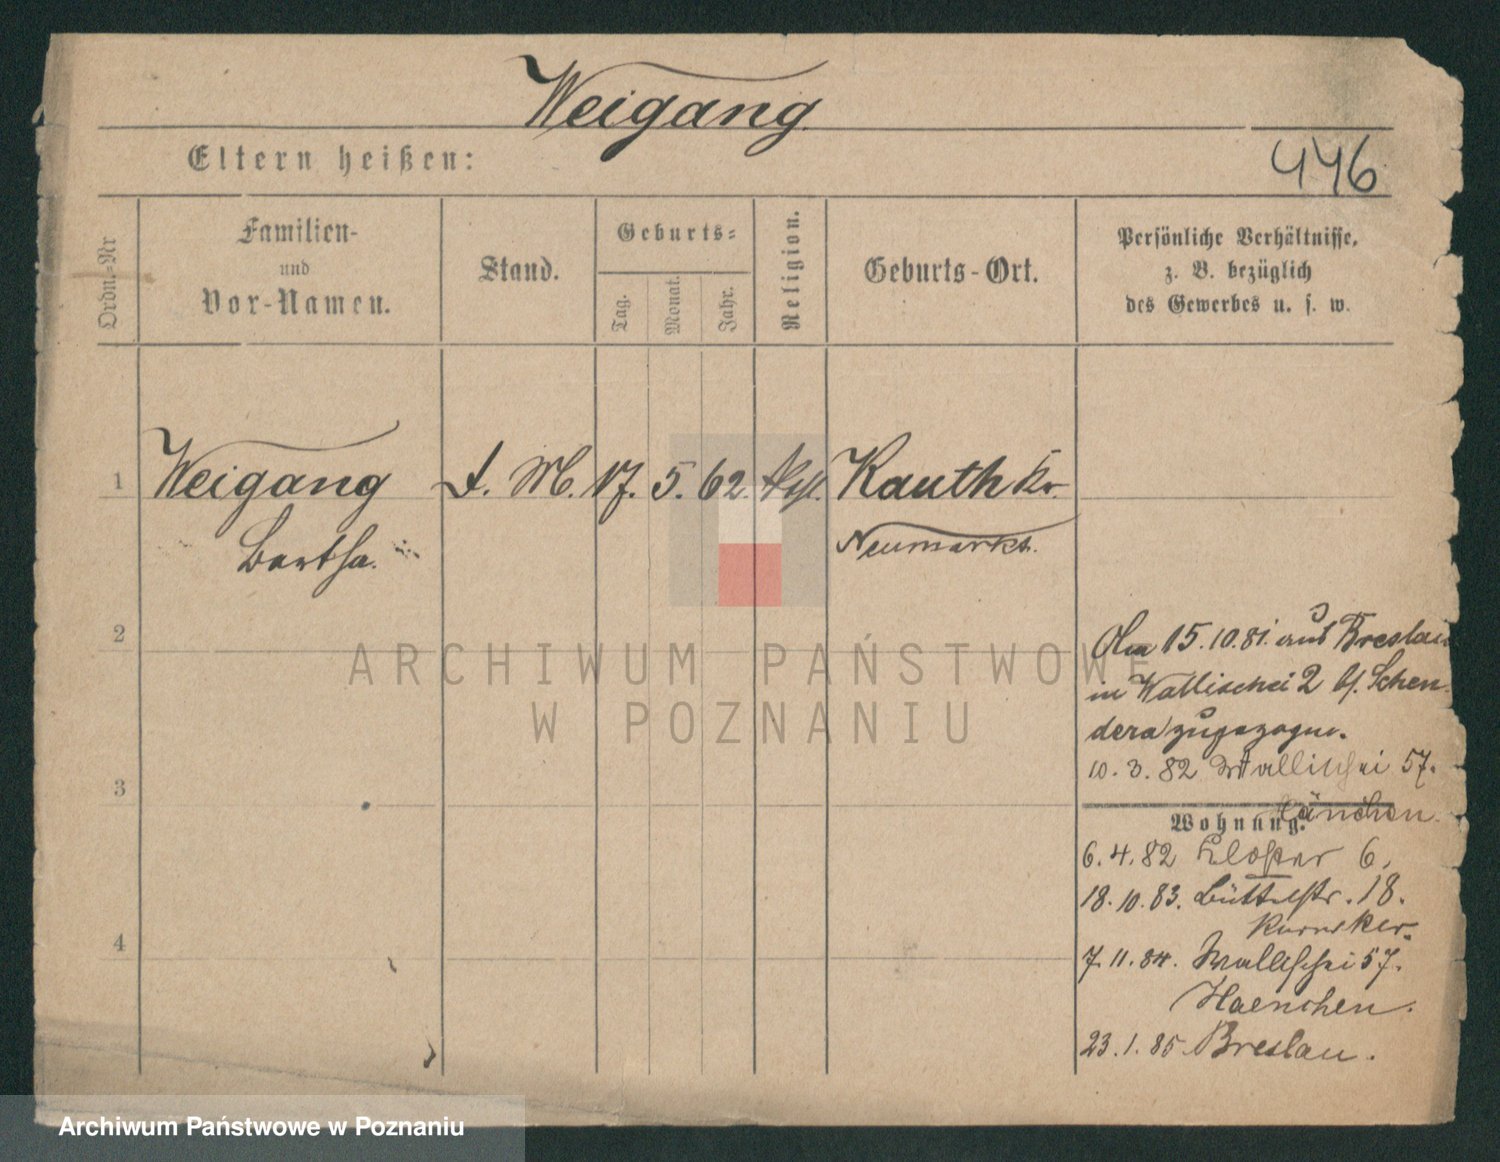 Weigang
Eltern heißen:
446
Ordn.-Nr
Familien-
und
Vor-Namen.
Stand.
Geburts-
Tag.
Monat.
Jahr.
Religion.
Geburts-Ort.
Persönliche Verhältnisse,
z. B. bezüglich
des Gewerbes u. s. w.
1 Weigang d. M. 17. 5. 62. Kauth Kr.
Bertha. Neumarkt.
2
Am 15.10.81. aus Breslau
in Wallischei 2 b/. Schen-
dera zugezogen.
10. 3. 82 Wallischei 57.
Hänchen.
3
Wohnung.
6. 4. 82 Kloster 6.
18. 10. 83. Büttelstr. 18.
4
7. 11. 84. Wallischei 57.
Haenchen.
23. 1. 85. Breslau.
ARCHIWUM PAŃSTWOWE
W POZNANIU
Archiwum Państwowe w Poznaniu